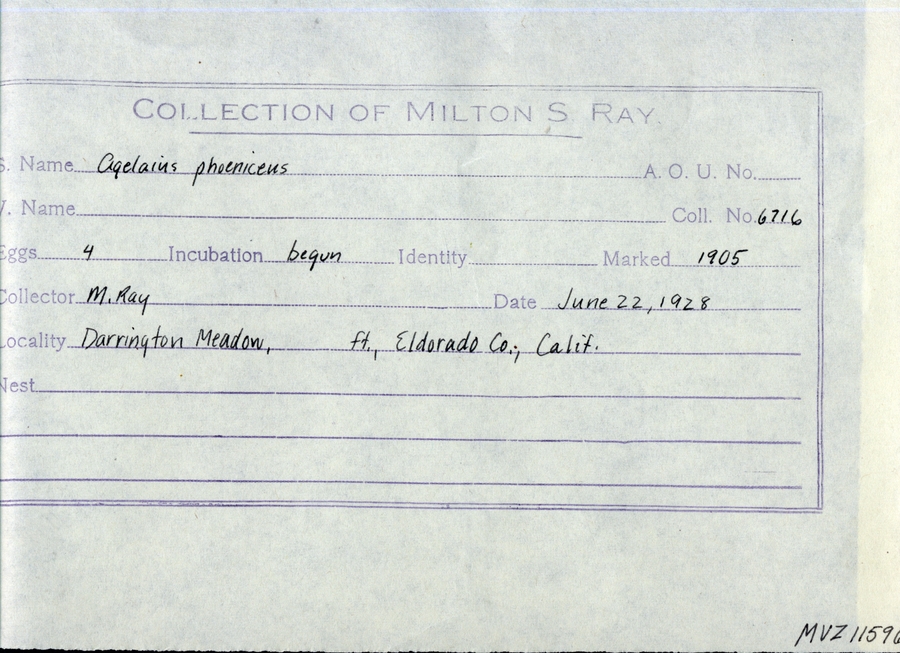 COLLECTION OF MILTON S. RAY.
S. Name Agelaius phoeniceus A. O. U. No.
V. Name Coll. No. 6716
Eggs 4 Incubation begun Identity Marked 1905
Collector M. Ray Date June 22, 1928
Locality Darrington Meadow, ft., Eldorado Co., Calif.
Nest
MVZ 11596